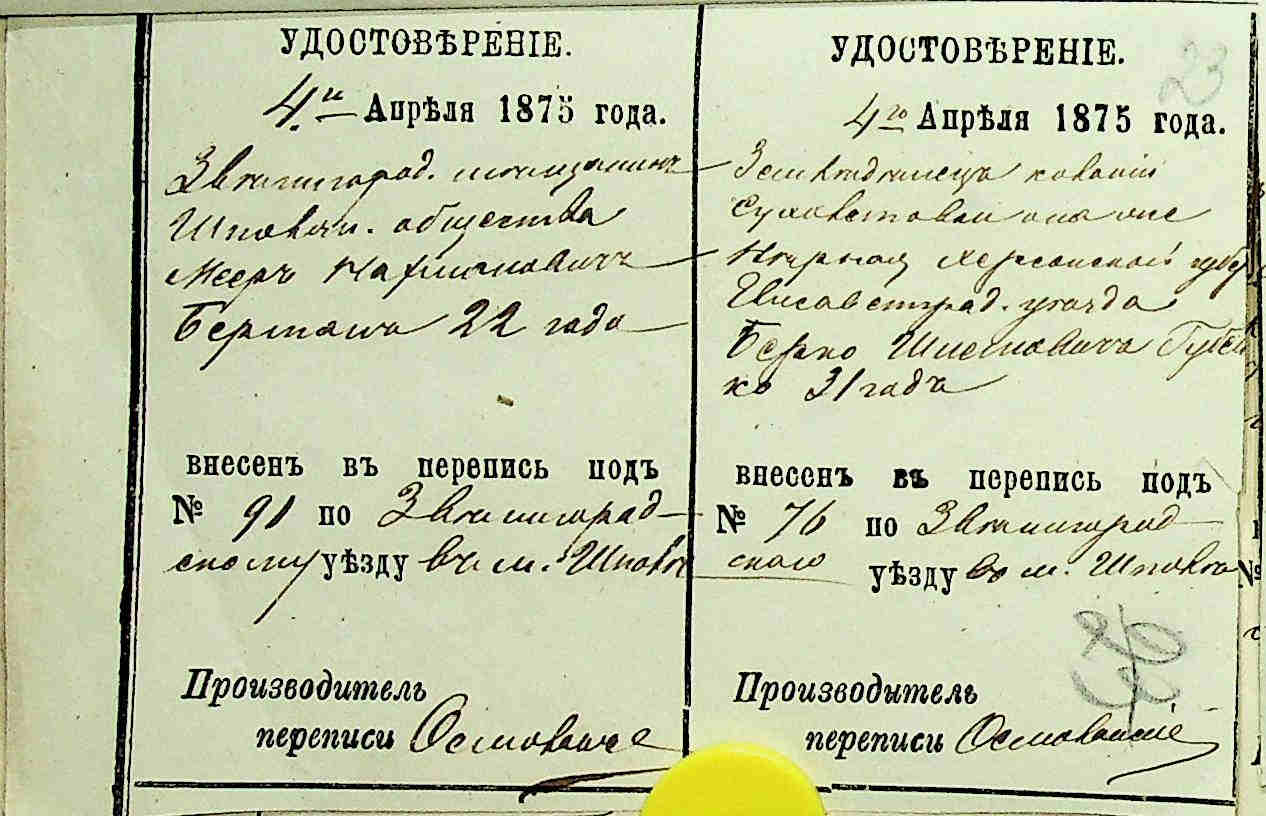 УДОСТОВѢРЕНІЕ.
4.го Апрѣля 1875 года.
Звенигород. мещанинъ
Шполян. общества
Мееръ
Берманъ 22 года
внесенъ въ перепись подъ
№ 91 по Звенигород-
скому уѣзду въ м. Шполѣ
Производитель
переписи
УДОСТОВѢРЕНІЕ.
23
4го Апрѣля 1875 года.
Земледѣлецъ колоніи
Херсонской губер
Елисаветград. уѣзда
Берко Губен
ко 31 годъ
внесенъ въ перепись подъ
№ 76 по Звенигород
скаго уѣзду въ м. Шпола
Производитель
переписи
№